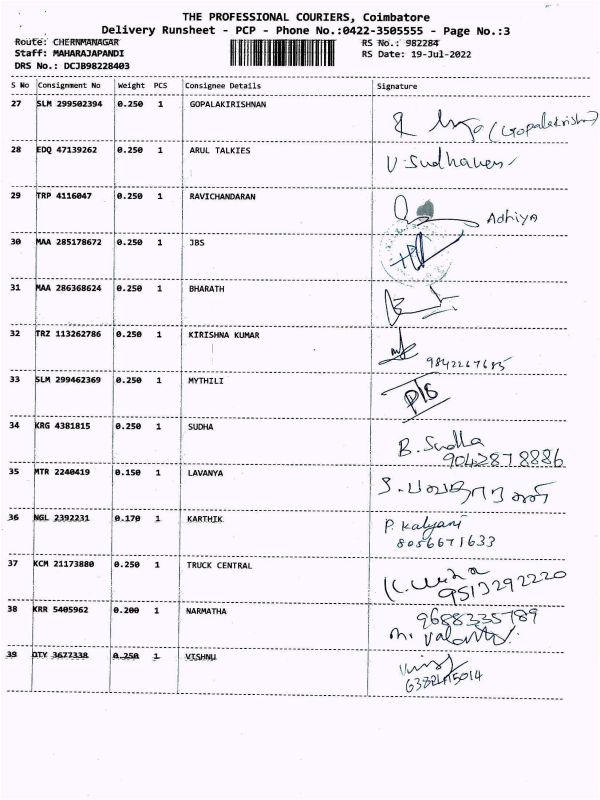 THE PROFESSIONAL COURIERS, Coimbatore
Delivery Runsheet - PCP - Phone No.:0422-3505555 - Page No.:3
Route: CHERNMANAGAR RS No.: 982284
Staff: MAHARAJAPANDI RS Date: 19-Jul-2022
DRS No.: DCJB98228403
S No Consignment No Weight PCS Consignee Details Signature
27 SLM 299502394 0.250 1 GOPALAKIRISHNAN (Gopalakrishn)
28 EDQ 47139262 0.250 1 ARUL TALKIES
29 TRP 4116047 0.250 1 RAVICHANDARAN Adhiya
30 MAA 285178672 0.250 1 JBS
31 MAA 286368624 0.250 1 BHARATH
32 TRZ 113262786 0.250 1 KIRISHNA KUMAR
33 SLM 299462369 0.250 1 MYTHILI
34 KRG 4381815 0.250 1 SUDHA B. Sudha
9042878886
35 MTR 2240419 0.150 1 LAVANYA
36 NGL 2392231 0.170 1 KARTHIK P. Kalyani
8056671633
37 KCM 21173880 0.250 1 TRUCK CENTRAL
9513292220
38 KRR 5405962 0.200 1 NARMATHA 9688335789
39 OTY 3677338 0.250 1 VISHNU